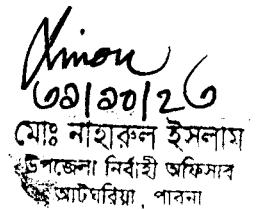 ৩১|১০|২৩
মোঃ নাহারুল ইসলাম
উপজেলা নির্বাহী অফিসার
আটঘরিয়া, পাবনা